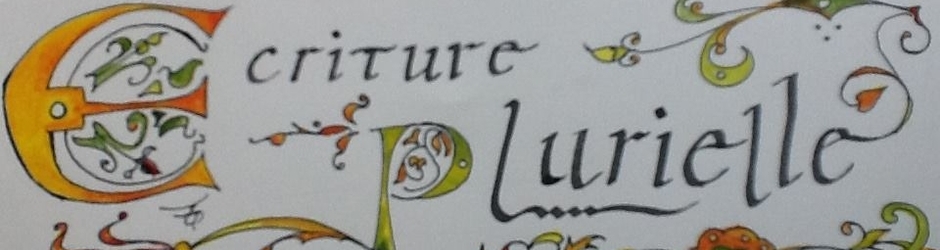 Ecriture
Plurielle